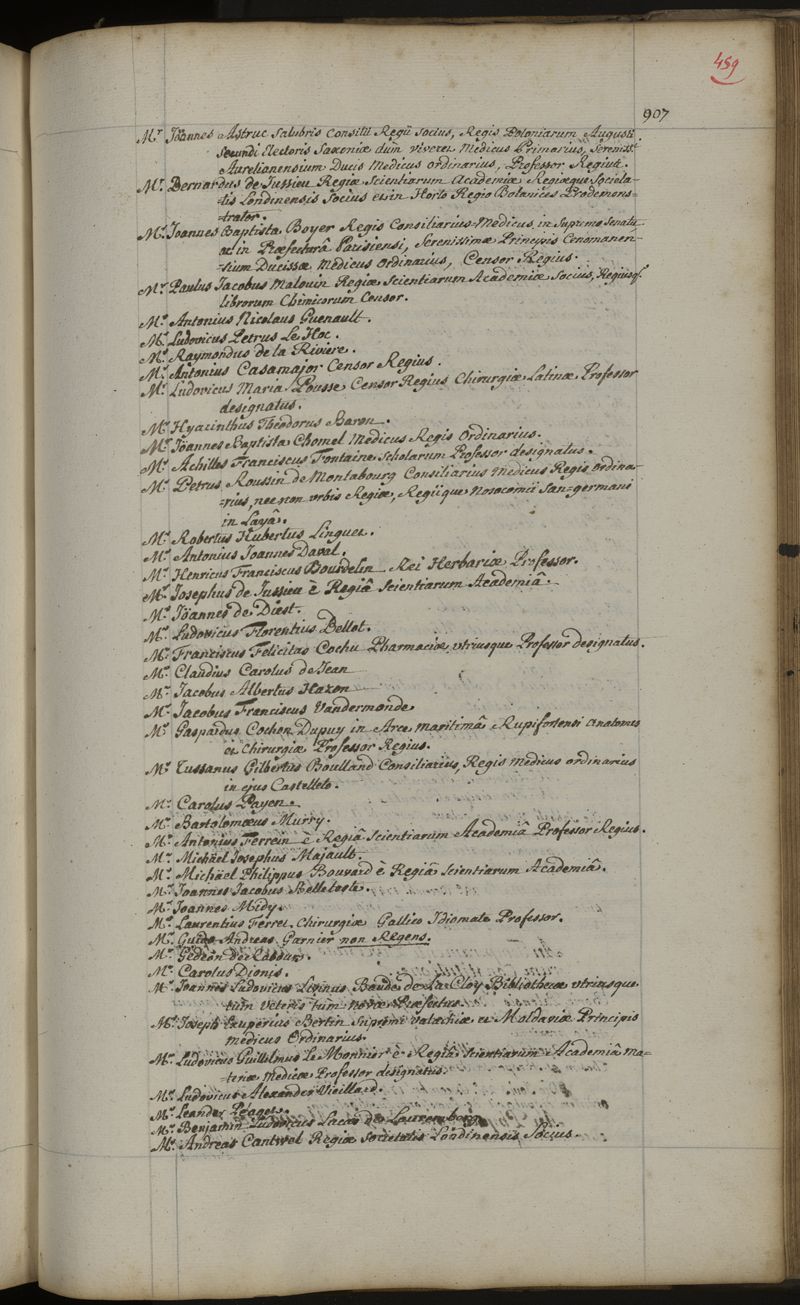 459
907
Mr. Joannes Astruc Salubris Consilii Regii Socius, Regis Poloniarum Augusti
Secundi Electoris Saxoniæ dum viveret Medicus Primarius, Sereniss.
Aurelianensium Ducis Medicus ordinarius, Professor Regius.
Mr. Bernardus de Jussieu Regiæ Scientiarum Academiæ Regiæque Societa-
-tis Londinensis Socius et in Horto Regio Botanices Prodemons-
-trator.
Mr. Joannes Baptista Boyer Regis Consiliarius-Medicus, in Supremo Senatu
ac in Præfecturâ Parisiensi, Serenissimæ Principis Cenomanen-
-sium Ducissæ Medicus ordinarius, Censor Regius.
Mr. Paulus Jacobus Malouin Regiæ Scientiarum Academiæ Socius, Regiusq.
librorum Chimicorum Censor.
Mr. Antonius Nicolaus Guenault.
Mr. Ludovicus Petrus Le Hoc.
Mr. Raymondus de la Riviere.
Mr. Antonius Casamajor Censor Regius.
Mr. Ludovicus Maria Pousse Censor Regius Chirurgiæ Latinæ Professor
designatus.
Mr. Hyacinthus Theodorus Baron.
Mr. Joannes Baptista Chomel Medicus Regis Ordinarius.
Mr. Achilles Franciscus Fontaine Scholarum Professor designatus.
Mr. Petrus Roussin de Montabourg Consiliarius Medicus Regis ordina-
-rius, nec non urbis Regiæ, Regiique Nosocomii San-germani
in Layâ.
Mr. Robertus Hubertus Linguet.
Mr. Antonius Joannes Daval.
Mr. Henricus Franciscus Bourdelin Rei Herbariæ Professor.
Mr. Josephus de Jussieu è Regiâ Scientiarum Academiâ.
Mr. Joannes de Diest.
Mr. Ludovicus Florentius Bellot.
Mr. Franciscus Felicitas Cochu Pharmaciæ utriusque Professor designatus.
Mr. Claudius Carolus de Jean
Mr. Jacobus Albertus Hazon
Mr. Jacobus Franciscus Vandermonde
Mr. Gaspardus Cochon Dupuy in Arce maritimâ Rupifortensi Anatomes
et Chirurgiæ Professor Regius.
Mr. Tussanus Gilbertus Boulland Consiliarius, Regis Medicus ordinarius
in ejus Castelleto.
Mr. Carolus Payen.
Mr. Bartolomæus Murry.
Mr. Antonius Ferrein è Regiâ Scientiarum Academiâ Professor Regius.
Mr. Michäel Josephus Majault.
Mr. Michäel Philippus Bouvard è Regiâ Scientiarum Academiâ.
Mr. Joannes Jacobus Belleteste.
Mr. Joannes Midy.
Mr. Laurentius Ferret Chirurgiæ Gallico Idiomate Professor.
Mr. Guido Andreas Garnier non Regens.
Mr. Gedeon de
Mr. Carolus Dionis.
Mr. Joannes Ludovicus Livinus Baude de La Cloy Bibliothecæ utriusque
tùm veteris tùm novæ Præfectus.
Mr. Joseph Exuperius Bertin Supremi Valachiæ et Moldaviæ Principis
Medicus Ordinarius.
Mr. Ludovicus Guillelmus Le Monnier è Regiâ Scientiarum Academiâ Ma-
-teriæ Medicæ Professor designatus.
Mr. Ludovicus Alexander Vieillard.
Mr. Leander Peaget.
Mr. Benjamin Ludovicus Lucas de Laurembourg
Mr. Andreas Cantwel Regiæ Societatis Londinensis Socius.